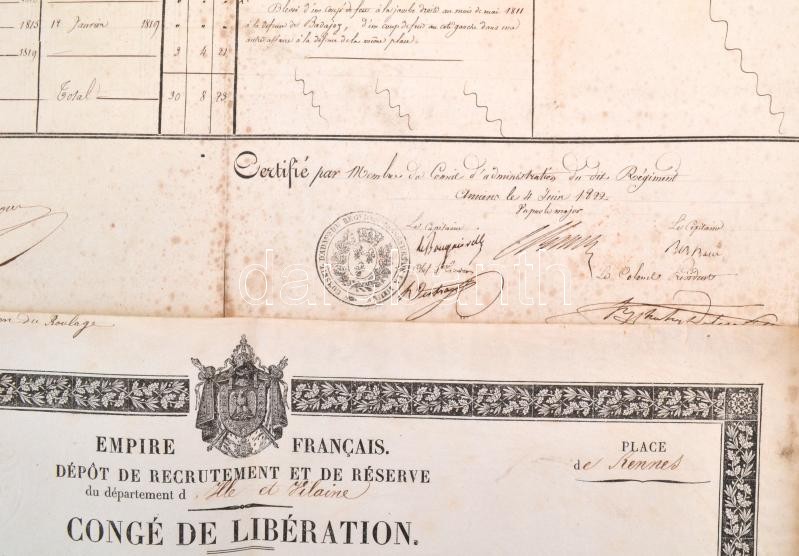 Blessé d'un coup de feu à la jambe droite au mois de mai 1811
à la défense de Badajoz, d'un coup de feu au côté gauche dans une
autre affaire à la défense de la même place.
1815 1er Janvier 1819
1819 3 4 21
Total 30 8 23
Certifié par Membre du Conseil d'administration du dit Régiment
Amiens le 4 Juin 1822
Le Capitaine
Le Capitaine
Le Colonel Président
du Roulage
EMPIRE FRANÇAIS.
PLACE
de Rennes
DÉPÔT DE RECRUTEMENT ET DE RÉSERVE
du département d'Ille et Vilaine
CONGÉ DE LIBÉRATION.
darabanth